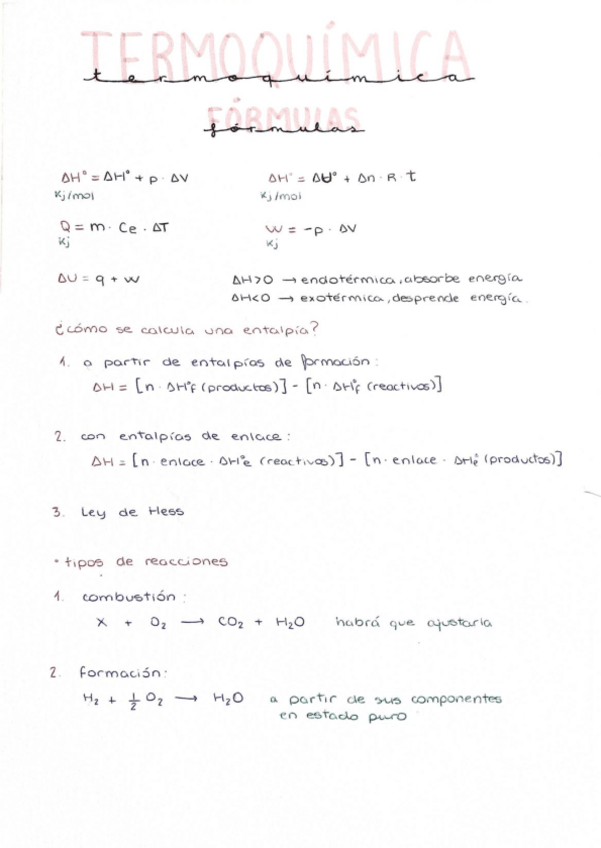 TERMOQUÍMICA
termoquímica
FÓRMULAS
fórmulas
ΔH° = ΔH° + p · ΔV
Kj/mol
ΔH° = ΔU° + Δn · R · t
Kj/mol
Q = m · Ce · ΔT
Kj
W = -p · ΔV
Kj
ΔU = q + w
ΔH>0 → endotérmica, absorbe energía
ΔH<0 → exotérmica, desprende energía.
¿cómo se calcula una entalpía?
1. a partir de entalpías de formación:
ΔH = [n · ΔH°f (productos)] - [n · ΔH°f (reactivos)]
2. con entalpías de enlace:
ΔH = [n · enlace · ΔH°e (reactivos)] - [n · enlace · ΔH°e (productos)]
3. Ley de Hess
· tipos de reacciones
1. combustión:
X + O₂ → CO₂ + H₂O habrá que ajustarla
2. formación:
H₂ + 1/2 O₂ → H₂O a partir de sus componentes
en estado puro